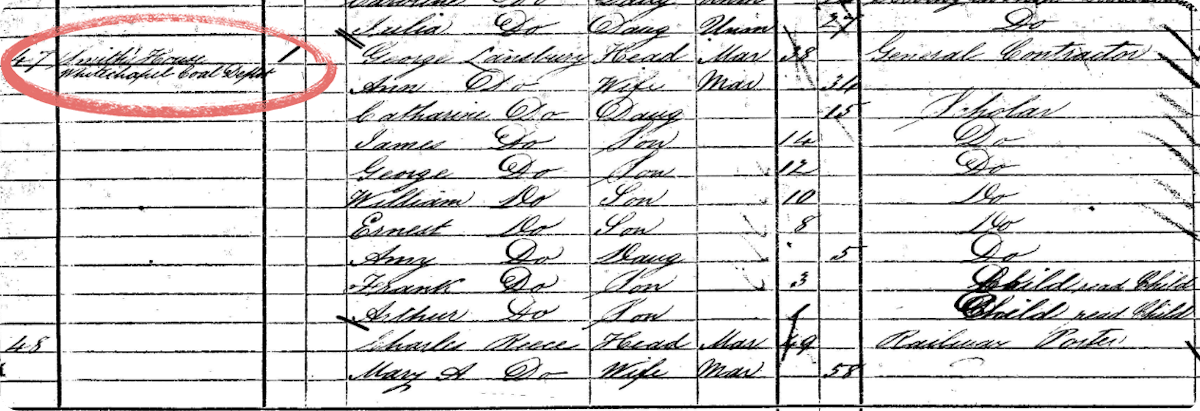 Julia Do Daug Unm 27 Do
47 Smith's House 1 George Lansbury Head Mar 38 General Contractor
Whitechapel Coal Depot
Ann Do Wife Mar 34
Catharine Do Daug 15 Scholar
James Do Son 14 Do
George Do Son 12 Do
William Do Son 10 Do
Ernest Do Son 8 Do
Amy Do Daug 5 Do
Frank Do Son 3 Child read Child
Arthur Do Son 1 Child read Child
48 Charles Reece Head Mar 49 Railway Porter
Mary A Do Wife Mar 58